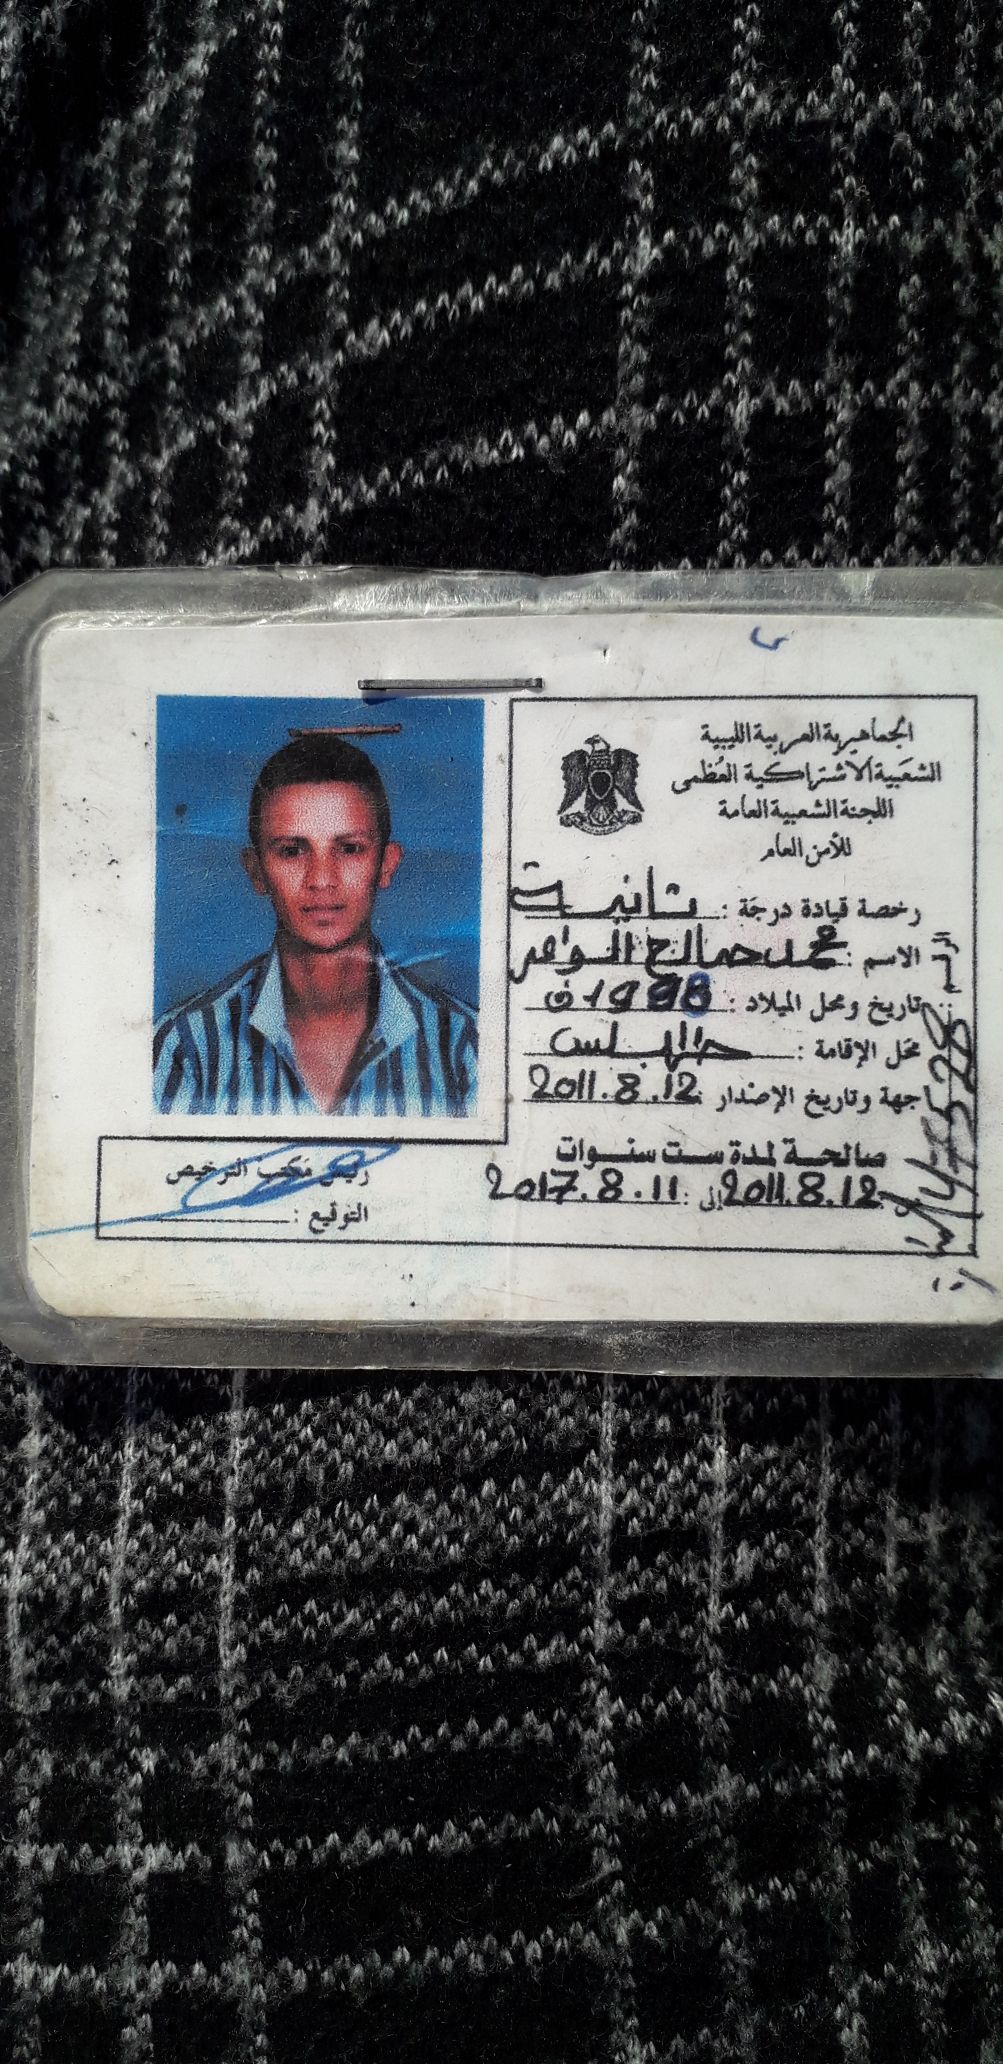 الجماهيرية العربية الليبية
الشعبية الاشتراكية العظمى
اللجنة الشعبية العامة
للأمن العام
رخصة قيادة درجة : ثانية
الاسم : محمد صالح
تاريخ ومحل الميلاد : 1998 ف
محل الإقامة : طرابلس
جهة وتاريخ الإصدار : 2011.8.12
صالحة لمدة ست سنوات
2011.8.12 إلى : 2017.8.11
رئيس مكتب الترخيص
التوقيع :